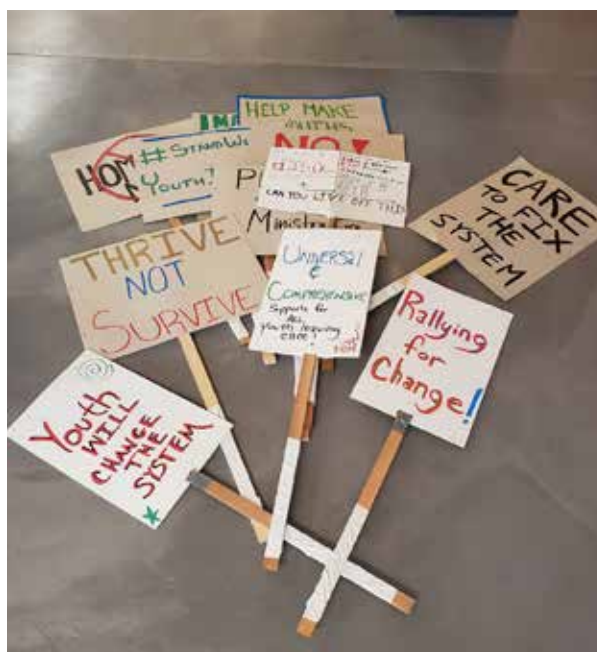 HELP MAKE
NO!
#STANDW
YOUTH?
CAN YOU LIVE OFF THIS
CARE
TO FIX
THE
SYSTEM
THRIVE
NOT
SURVIVE
UNIVERSAL
&
COMPREHENSIVE
Supports for
ALL
Youth requiring
CARE!
Rallying
for
Change!
Youth
WILL
CHANGE
THE
SYSTEM